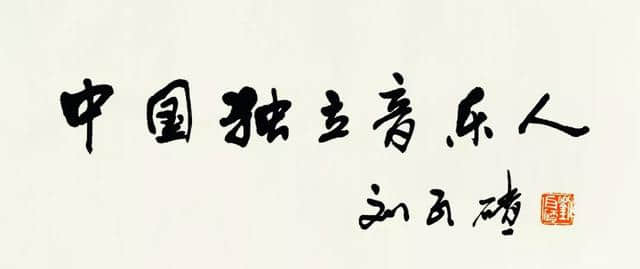 中国独立音乐人
刘